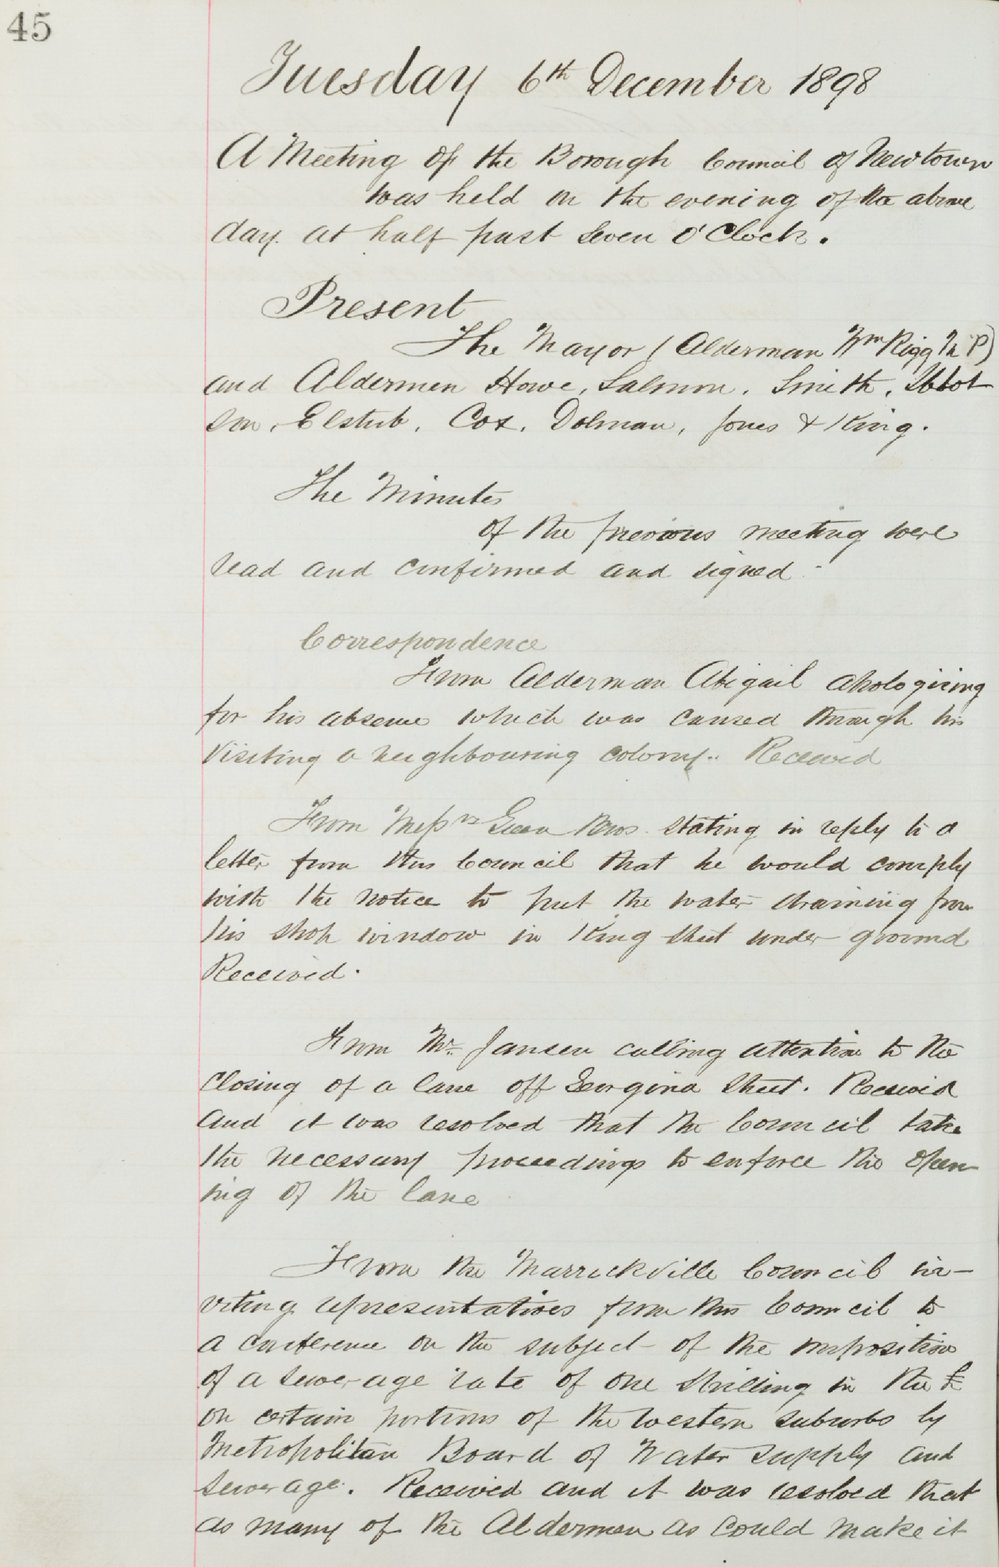 45
Tuesday 6th December 1898
A Meeting of the Borough Council of Newtown
was held on the evening of the above
day at half past seven o'Clock.
Present
The Mayor (Alderman Wm Rigg M P)
and Aldermen Howe, Salmon, Smith, Ibbot
son, Elstub, Cox, Dolman, Jones & King.
The Minutes
of the previous meeting were
read and confirmed and signed
Correspondence
From Alderman Abigail apologising
for his absence which was caused through his
visiting a neighbouring colony. Received
From Messrs Bros. stating in reply to a
letter from this Council that he would comply
with the notice to put the water draining from
his shop window in King Street under ground
Received.
From Mr. Jansen calling attention to the
closing of a lane off Georgina Street. Received
and it was resolved that the Council take
the necessary proceedings to enforce the open
ing of the lane
From the Marrickville Council in-
viting representatives from this Council to
a conference on the subject of the imposition
of a sewerage rate of one shilling in the £
on certain portions of the Western suburbs by
Metropolitan Board of Water Supply and
Sewerage. Received and it was resolved that
as many of the Aldermen as could make it